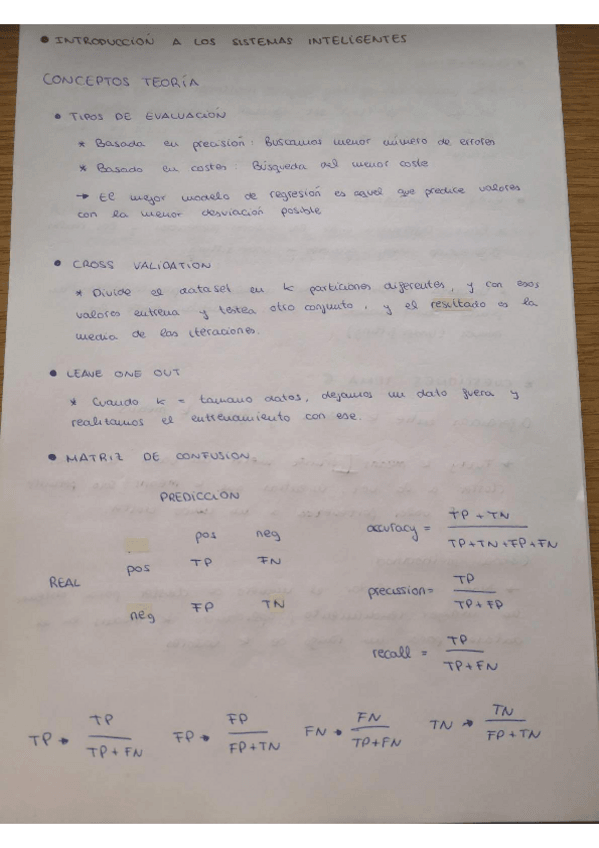 • INTRODUCCIÓN A LOS SISTEMAS INTELIGENTES
CONCEPTOS TEORÍA
• TIPOS DE EVALUACIÓN
* Basada en precisión: Buscamos menor número de errores
* Basado en costes: Búsqueda del menor coste
→ El mejor modelo de regresión es aquel que produce valores
con la menor desviación posible
• CROSS VALIDATION
* Divide el dataset en k particiones diferentes, y con esos
valores entrena y testea otro conjunto, y el resultado es la
media de las iteraciones.
• LEAVE ONE OUT
* Cuando k = tamano datos, dejamos un dato fuera y
realitamos el entrenamiento con ese.
• MATRIZ DE CONFUSION
PREDICCIÓN
pos neg
REAL
pos TP FN
neg FP TN
accuracy = TP + TN / TP+TN+FP+FN
precission = TP / TP+FP
recall = TP / TP+FN
TP → TP / TP+FN
FP → FP / FP+TN
FN → FN / TP+FN
TN → TN / FP+TN